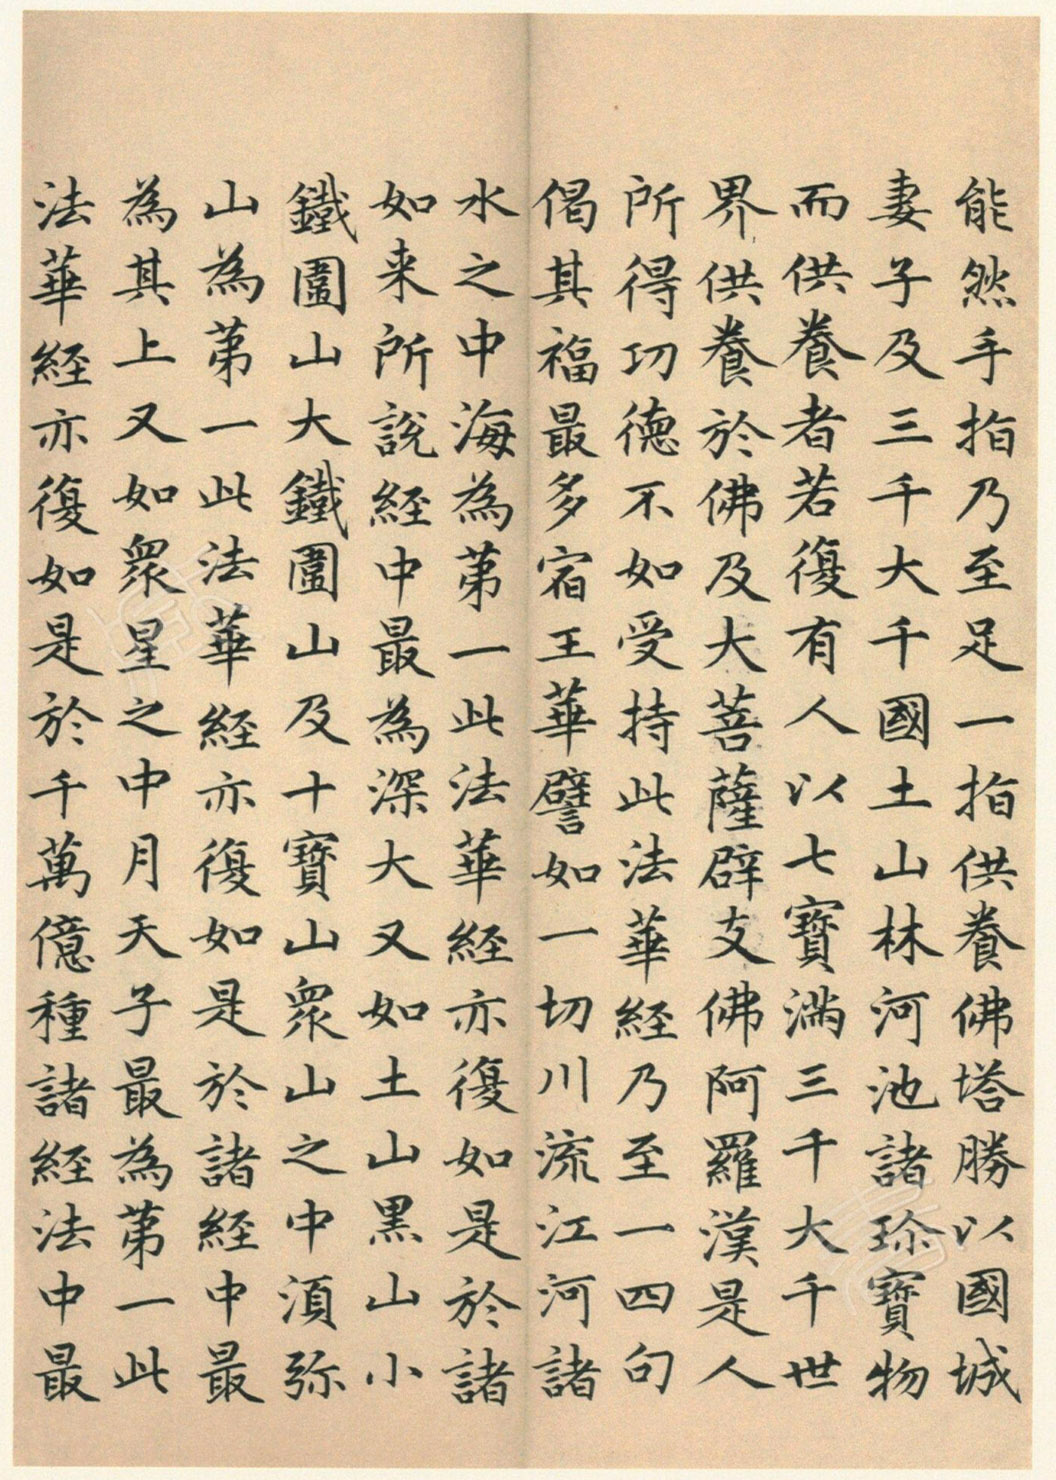 能然手指乃至足一指供養佛塔勝以國城
妻子及三千大千國土山林河池諸珎寶物
而供養者若復有人以七寶滿三千大千世
界供養於佛及大菩薩辟支佛阿羅漢是人
所得功德不如受持此法華經乃至一四句
偈其福最多宿王華譬如一切川流江河諸
水之中海為第一此法華經亦復如是於諸
如来所說經中最為深大又如土山黑山小
鐵圍山大鐵圍山及十寶山眾山之中湏弥
山為第一此法華經亦復如是於諸經中最
為其上又如眾星之中月天子最為第一此
法華經亦復如是於千萬億種諸經法中最